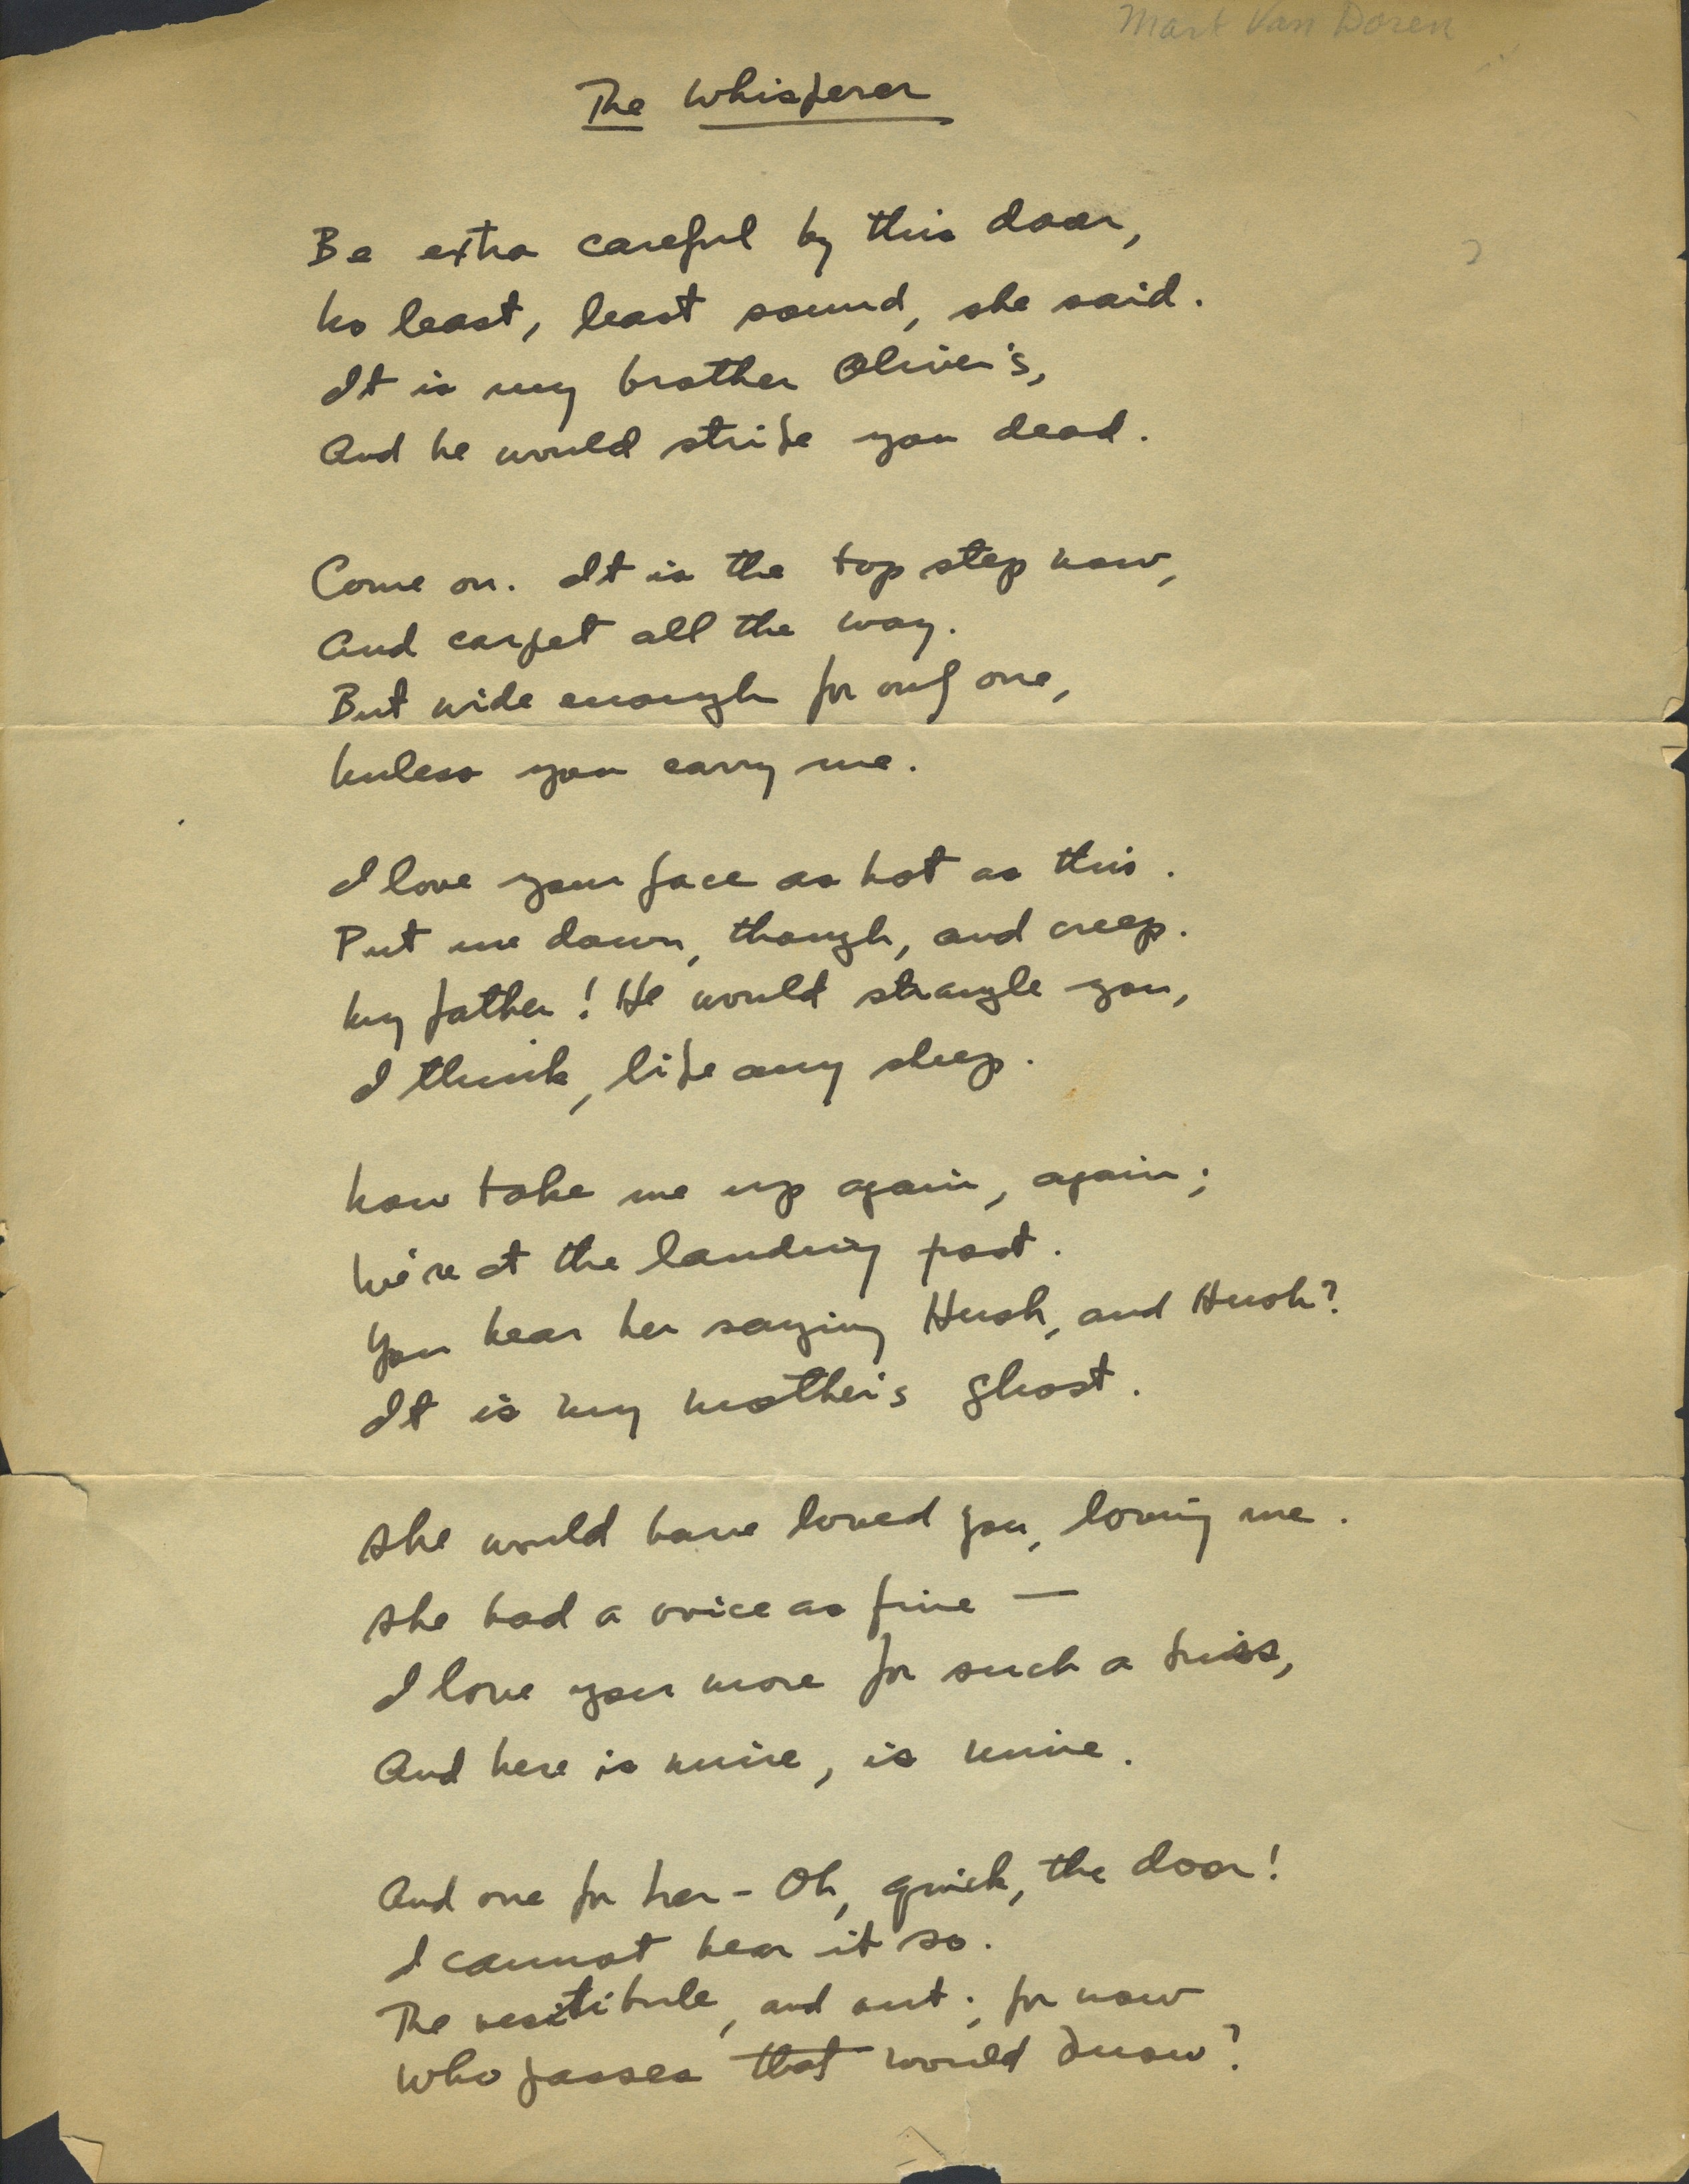 Mark Van Doren
The Whisperer
Be extra careful by this door,
No least, least sound, she said.
It is my brother Oliver's,
And he would strike you dead.
Come on. It is the top step now,
And carpet all the way.
But wide enough for only one,
Unless you carry me.
I love your face as hot as this.
Put me down, though, and creep.
My father! He would strangle you,
I think, like any sheep.
Now take me up again, again;
We're at the landing post.
You hear her saying Hush, and Hush?
It is my mother's ghost.
She would have loved you, loving me.
She had a voice as fine —
I love you more for such a kiss,
And here is mine, is mine.
And one for her - Oh, quick, the door!
I cannot bear it so.
The vestibule, and out; for now
Who passes that would know?